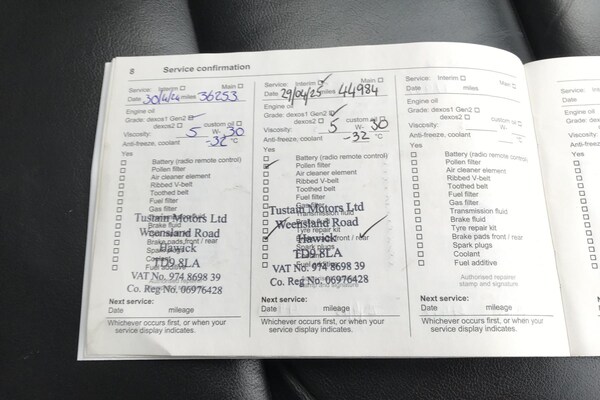 8 Service confirmation
Service: Interim Main
Date 30/4/24 miles 36253
Engine oil
Grade: dexos1 Gen2
dexos2 custom oil
Viscosity: 5 W- 30
Anti-freeze, coolant -32 °C
Yes
Battery (radio remote control)
Pollen filter
Air cleaner element
Ribbed V-belt
Toothed belt
Fuel filter
Gas filter
Tustain Motors Ltd
Brake fluid
Weensland Road
Brake pads front / rear
Hawick
Coolant
TD9 8LA
Fuel additive
VAT No. 974 8698 39
Co. Reg No. 06976428
Next service:
Date mileage
Whichever occurs first, or when your
service display indicates.
Service: Interim Main
Date 29/04/25 miles 44984
Engine oil
Grade: dexos1 Gen2
dexos2 custom oil
Viscosity: 5 W- 30
Anti-freeze, coolant -32 °C
Yes
Battery (radio remote control)
Pollen filter
Air cleaner element
Ribbed V-belt
Toothed belt
Fuel filter
Gas filter
Tustain Motors Ltd
Transmission fluid
Weensland Road
Tyre repair kit
Hawick
front / rear
Spark plugs
TD9 8LA
Fuel additive
VAT No. 974 8698 39
Co. Reg No. 06976428
stamp and signature
Next service:
Date mileage
Whichever occurs first, or when your
service display indicates.
Service: Interim Main
Date miles
Engine oil
Grade: dexos1 Gen2
dexos2 custom oil
Viscosity: W-
Anti-freeze, coolant °C
Yes
Battery (radio remote control)
Pollen filter
Air cleaner element
Ribbed V-belt
Toothed belt
Fuel filter
Gas filter
Transmission fluid
Brake fluid
Tyre repair kit
Brake pads front / rear
Spark plugs
Coolant
Fuel additive
Authorised repairer
stamp and signature
Next service:
Date mileage
Whichever occurs first, or when your
service display indicates.